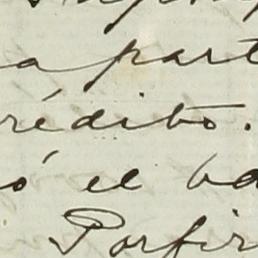 a part
rédito.
ó el ba
Porfir